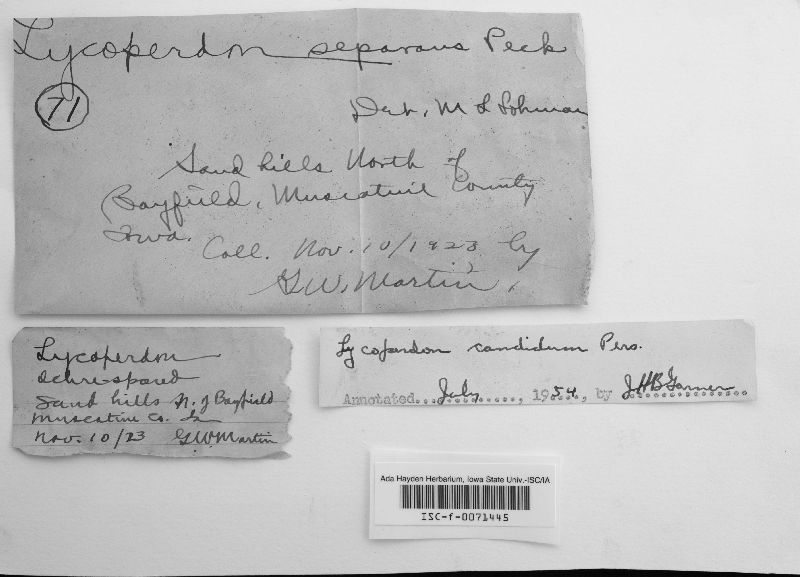 Lycoperdon separans Peck
71
Det. M L Lohman
Sand hills North of
Bayfield, Muscatine County
Iowa.
Coll. Nov. 10/1923 by
G.W. Martin.
Lycoperdon
ochre-spored
Sand hills N. of Bayfield
Muscatine Co. Ia
Nov. 10/23 GWMartin
Lycoperdon candidum Pers.
Annotated...July......, 1954..., by JHBGarner
Ada Hayden Herbarium, Iowa State Univ.-ISC/IA
ISC-f-0071445